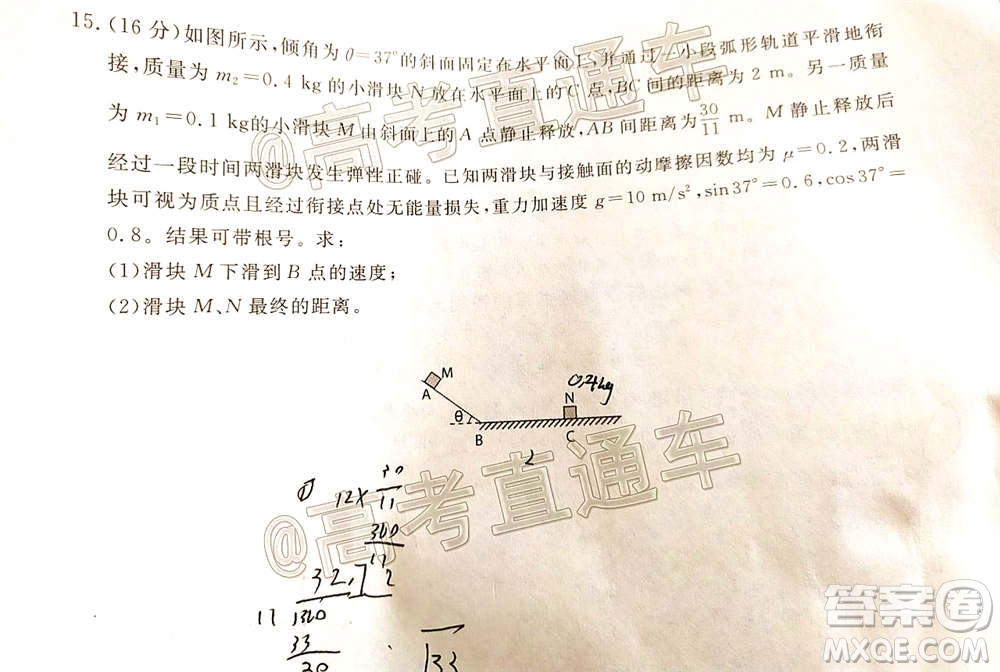 15. (16 分)如图所示,倾角为 θ=37°的斜面固定在水平面上,并通过一小段弧形轨道平滑地衔
接,质量为 m₂=0.4 kg 的小滑块 N 放在水平面上的 C 点,BC 间的距离为 2 m。另一质量
为 m₁=0.1 kg的小滑块 M 由斜面上的 A 点静止释放,AB 间距离为 30/11 m。M 静止释放后
经过一段时间两滑块发生弹性正碰。已知两滑块与接触面的动摩擦因数均为 μ=0.2,两滑
块可视为质点且经过衔接点处无能量损失,重力加速度 g=10 m/s²,sin37°=0.6,cos37°=
0.8。结果可带根号。求:
(1)滑块 M 下滑到 B 点的速度;
(2)滑块 M、N 最终的距离。
M
A
θ
B
0.4kg
N
C
2
① 12× 30/11
360
11
32.72
11 360
33
30
133
@高考直通车
@高考直通车
答案圈
MXQE.COM